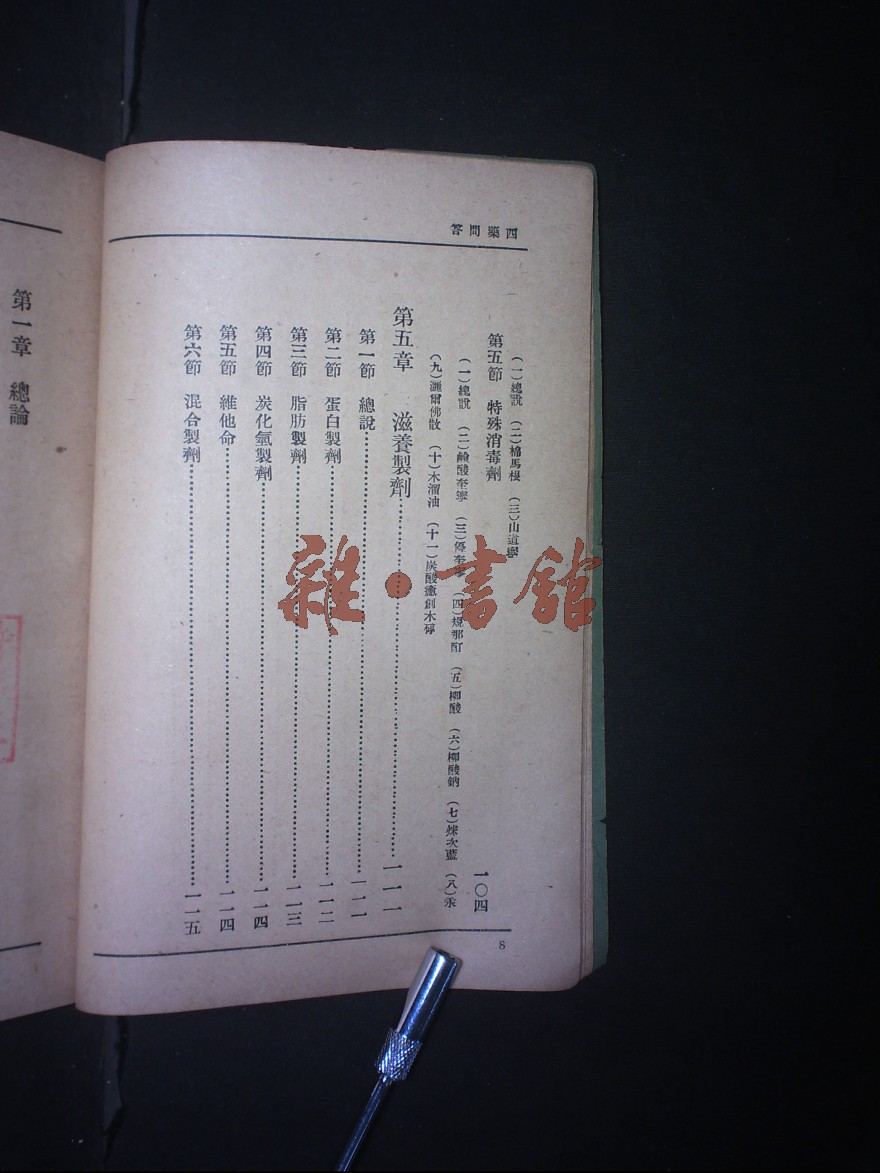 四藥問答
(一)總說 (二)棉馬根 (三)山道寧
第五節 特殊消毒劑 一〇四
(一)總說 (二)鹽酸奎寧 (三)優奎寧 (四)規那酊 (五)柳酸 (六)柳酸鈉 (七)次藍 (八)汞
(九)灑爾佛散 (十)木溜油 (十一)炭酸癒創木
第五章 滋養製劑 一一一
第一節 總說 一一一
第二節 蛋白製劑 一一二
第三節 脂肪製劑 一一三
第四節 炭化氫製劑 一一四
第五節 維他命 一一四
第六節 混合製劑 一一五
8
第一章 總論
雜·書館